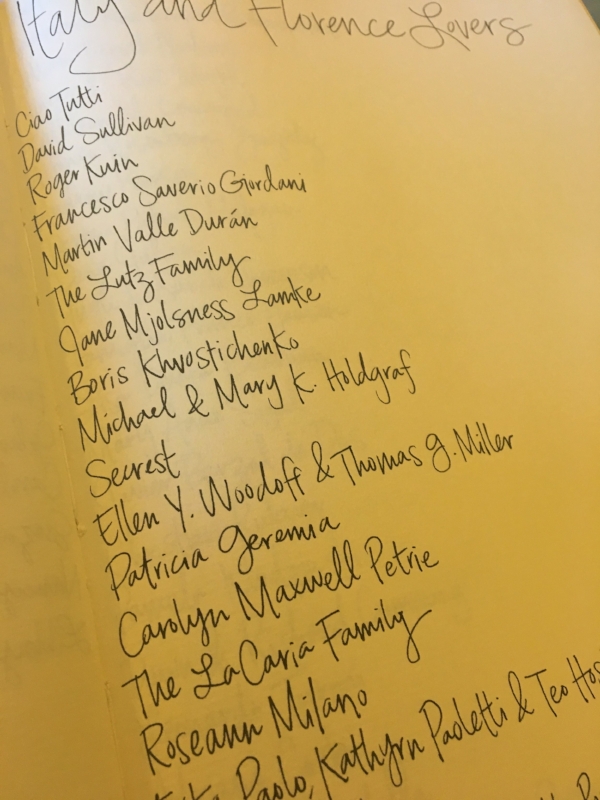 Italy and Florence Lovers
Ciao Tutti
David Sullivan
Roger Kuin
Francesco Saverio Giordani
Martin Valle Durán
The Lutz Family
Jane Mjolsness Lamke
Boris Khvostichenko
Michael & Mary K. Holdgraf
Secrest
Ellen Y. Woodoff & Thomas G. Miller
Patricia Geremia
Carolyn Maxwell Petrie
The LaCaria Family
Roseann Milano
Paolo, Kathyrn Paoletti & Teo